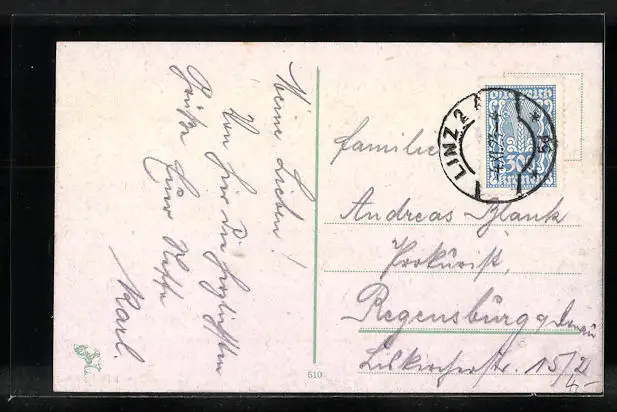 Meine Lieben!
Von hier die herzlichsten
Grüße Euer Neffe
Karl.
Familie
Andreas Blank
Prokurist,
Regensburg
15/2
4,-
LINZ 2
30
510